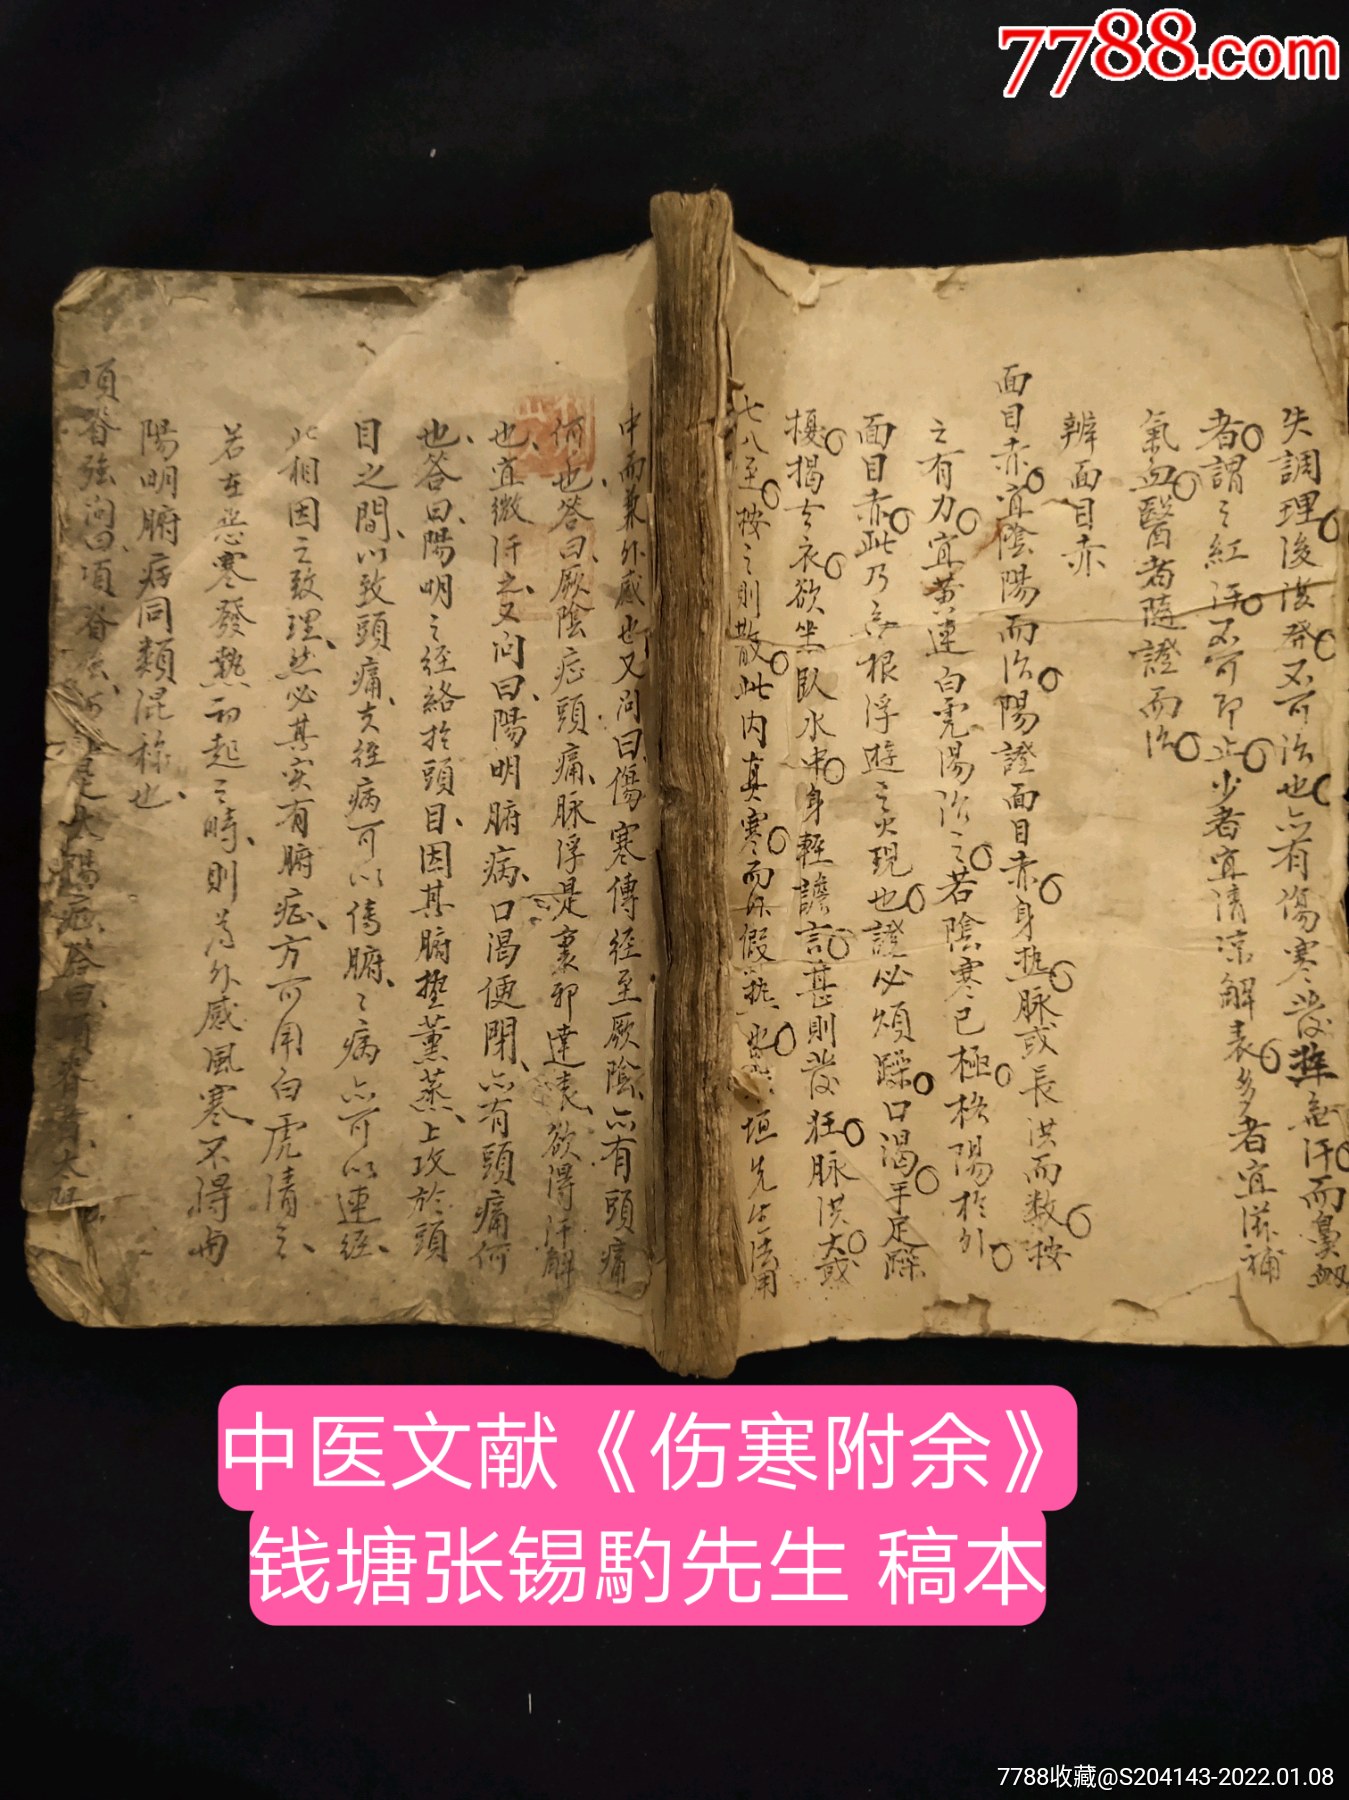 7788.com
失調理後復發不可治也亦有傷寒發無汗而鼻衂
者謂之紅汗不可即止少者宜清凉解表多者宜滋補
氣血醫者隨證而治
辨面目赤
面目赤宜陰陽而治陽證面目赤身热脉或長洪而数按
之有力宜黄連白虎湯治之若陰寒已極格陽於外
面目赤此乃無根浮遊之火現也證必煩躁口渴手足躁
擾揭去衣欲坐臥水中身輕譫言甚則發狂脉洪大或
七八至按之則散此内真寒而假熱也垣先生法用
中而兼外感也又问曰傷寒傳经至厥陰亦有頭痛
何也答曰厥陰症頭痛脉浮是裏邪達表欲得汗解
也宜微汗之又问曰陽明腑病口渴便閉亦有頭痛何
也答曰陽明之经絡於頭目因其腑熱薫蒸上攻於頭
目之間以致頭痛夫经病可以傳腑之病亦可以連经
此相因之致理然必其实有腑症方可用白虎清之
若在惡寒發熱初起之時則为外感風寒不得與
陽明腑病同類混称也
項脊强问曰項脊是太陽症答曰項脊太陽
中医文献《伤寒附余》
钱塘张锡駒先生 稿本
7788收藏@S204143-2022.01.08